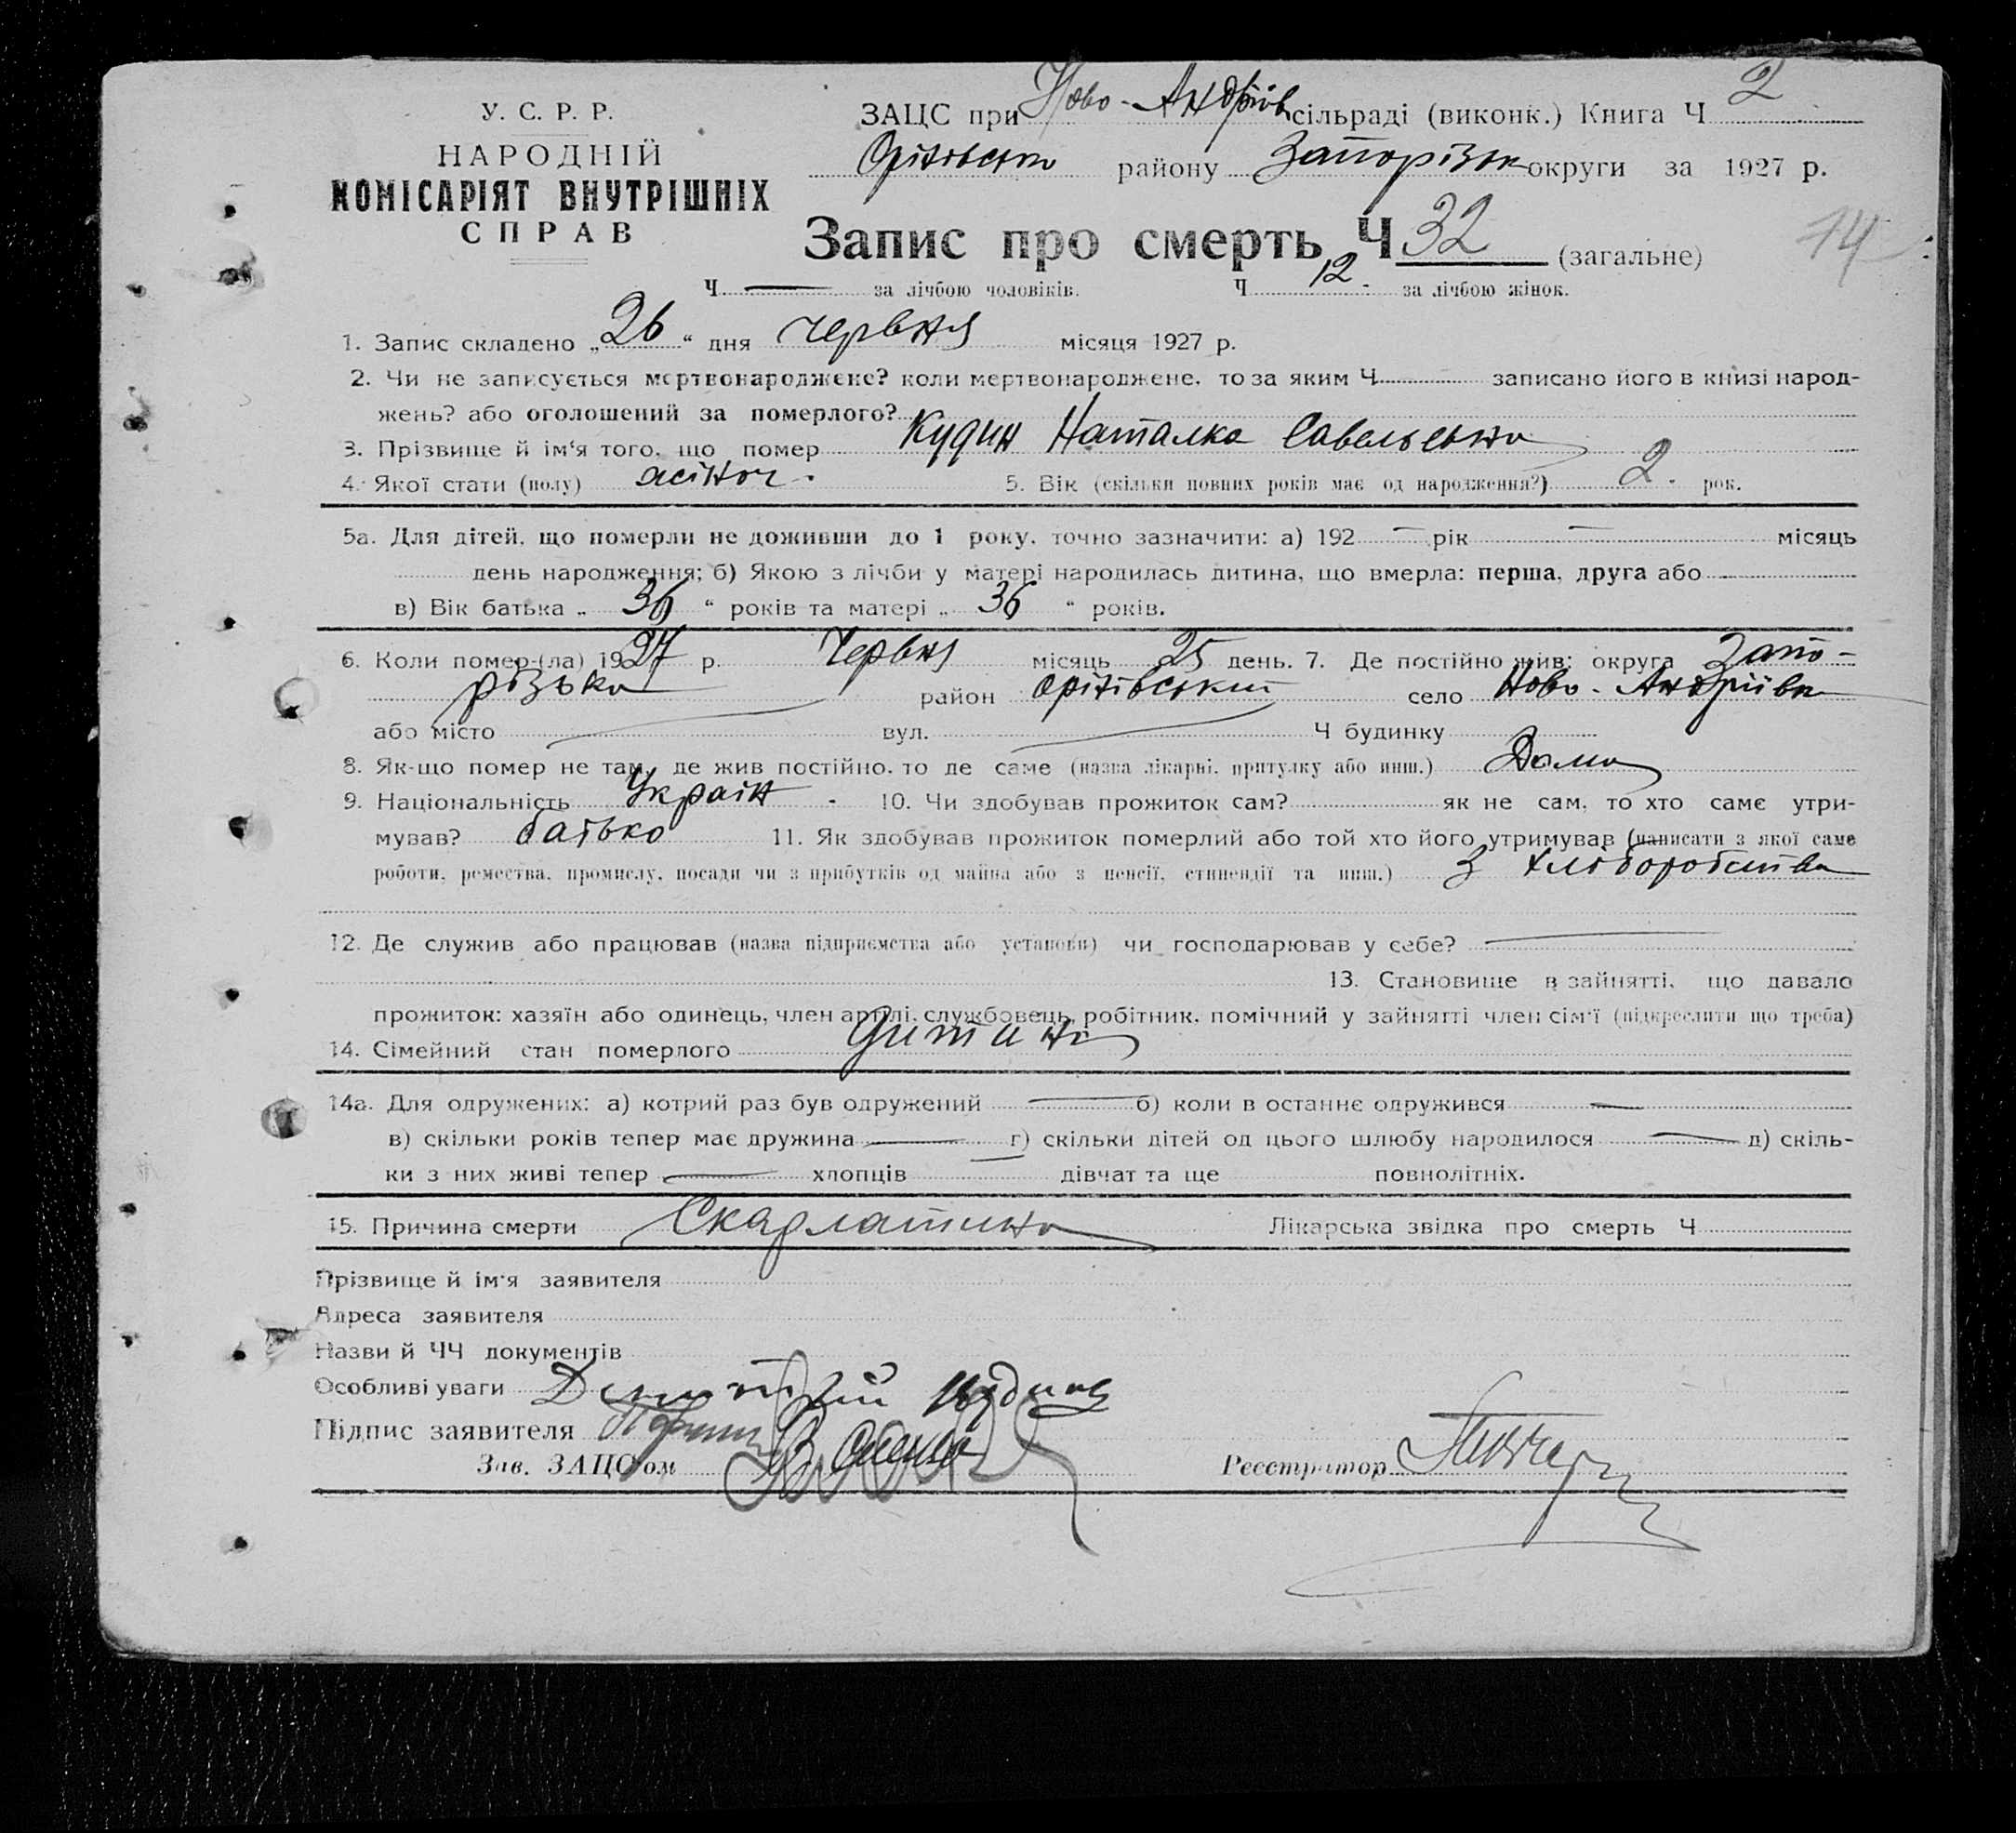 У. С. Р. Р.
НАРОДНІЙ
КОМІСАРІЯТ ВНУТРІШНІХ
СПРАВ
ЗАЦС при Ново-Андріїв сільраді (виконк.) Книга Ч 2
Оріхівськ району Запорізьк округи за 1927 р.
Запис про смерть Ч 32 (загальне)
14
Ч — за лічбою чоловіків. Ч 12. за лічбою жінок.
1. Запис складено „26“ дня червня місяця 1927 р.
2. Чи не записується мертвонароджене? коли мертвонароджене, то за яким Ч записано його в книзі народ-
жень? або оголошений за померлого?
3. Прізвище й ім'я того, що помер Кудин Наталка Савельевна
4. Якої стати (полу) жіноч. 5. Вік (скільки повних років має од народження?) 2. рок.
5а. Для дітей, що померли не доживши до 1 року, точно зазначити: а) 192 — рік — місяць
день народження; б) Якою з лічби у матері народилась дитина, що вмерла: перша, друга або
в) Вік батька „ 36 “ років та матері „ 36 “ років.
6. Коли помер-(ла) 1927 р. Червня місяць 25 день. 7. Де постійно жив: округа Запо-
різька район Оріхівський село Ново-Андріївка
або місто вул. Ч будинку
8. Як-що помер не там, де жив постійно, то де саме (назва лікарні, притулку або инш.) Дома
9. Національність Україн. 10. Чи здобував прожиток сам? як не сам, то хто саме утри-
мував? батько 11. Як здобував прожиток померлий або той хто його утримував (написати з якої саме
роботи, ремества, промислу, посади чи з прибутків од майна або з пенсії, стипендії та инш.) З хліборобства
12. Де служив або працював (назва підприємства або установи) чи господарював у себе? —
13. Становище в зайнятті, що давало
прожиток: хазяїн або одинець, член артілі, службовець, робітник, помічний у зайнятті член сім'ї (підкреслити що треба)
14. Сімейний стан померлого дитина
14а. Для одружених: а) котрий раз був одружений — б) коли в останнє одружився —
в) скільки років тепер має дружина — г) скільки дітей од цього шлюбу народилося — д) скіль-
ки з них живі тепер — хлопців — дівчат та ще повнолітніх.
15. Причина смерти Скарлатина Лікарська звідка про смерть Ч
Прізвище й ім'я заявителя
Адреса заявителя
Назви й ЧЧ документів
Особливі уваги
Підпис заявителя
Зав. ЗАЦС'ом Реєстратор